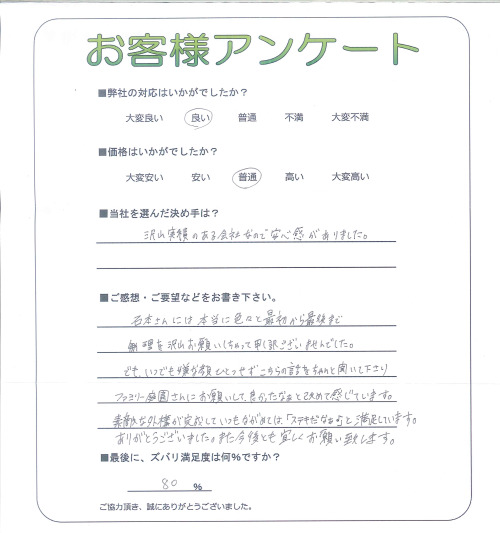 お客様アンケート
■弊社の対応はいかがでしたか？
大変良い 良い 普通 不満 大変不満
■価格はいかがでしたか？
大変安い 安い 普通 高い 大変高い
■当社を選んだ決め手は？
沢山実績のある会社なので安心感がありました。
■ご感想・ご要望などをお書き下さい。
石本さんには本当に色々と最初から最後まで
無理を沢山お願いしちゃって申し訳ございませんでした。
でも、いつでも嫌な顔ひとつせずこちらの話をちゃんと聞いて下さり
ファミリー庭園さんにお願いして、良かったなぁと改めて感じています。
素敵な外構が完成していつもながめては、「ステキだなぁ」と満足しています。
ありがとうございました。また今後とも宜しくお願い致します。
■最後に、ズバリ満足度は何％ですか？
80 ％
ご協力頂き、誠にありがとうございました。